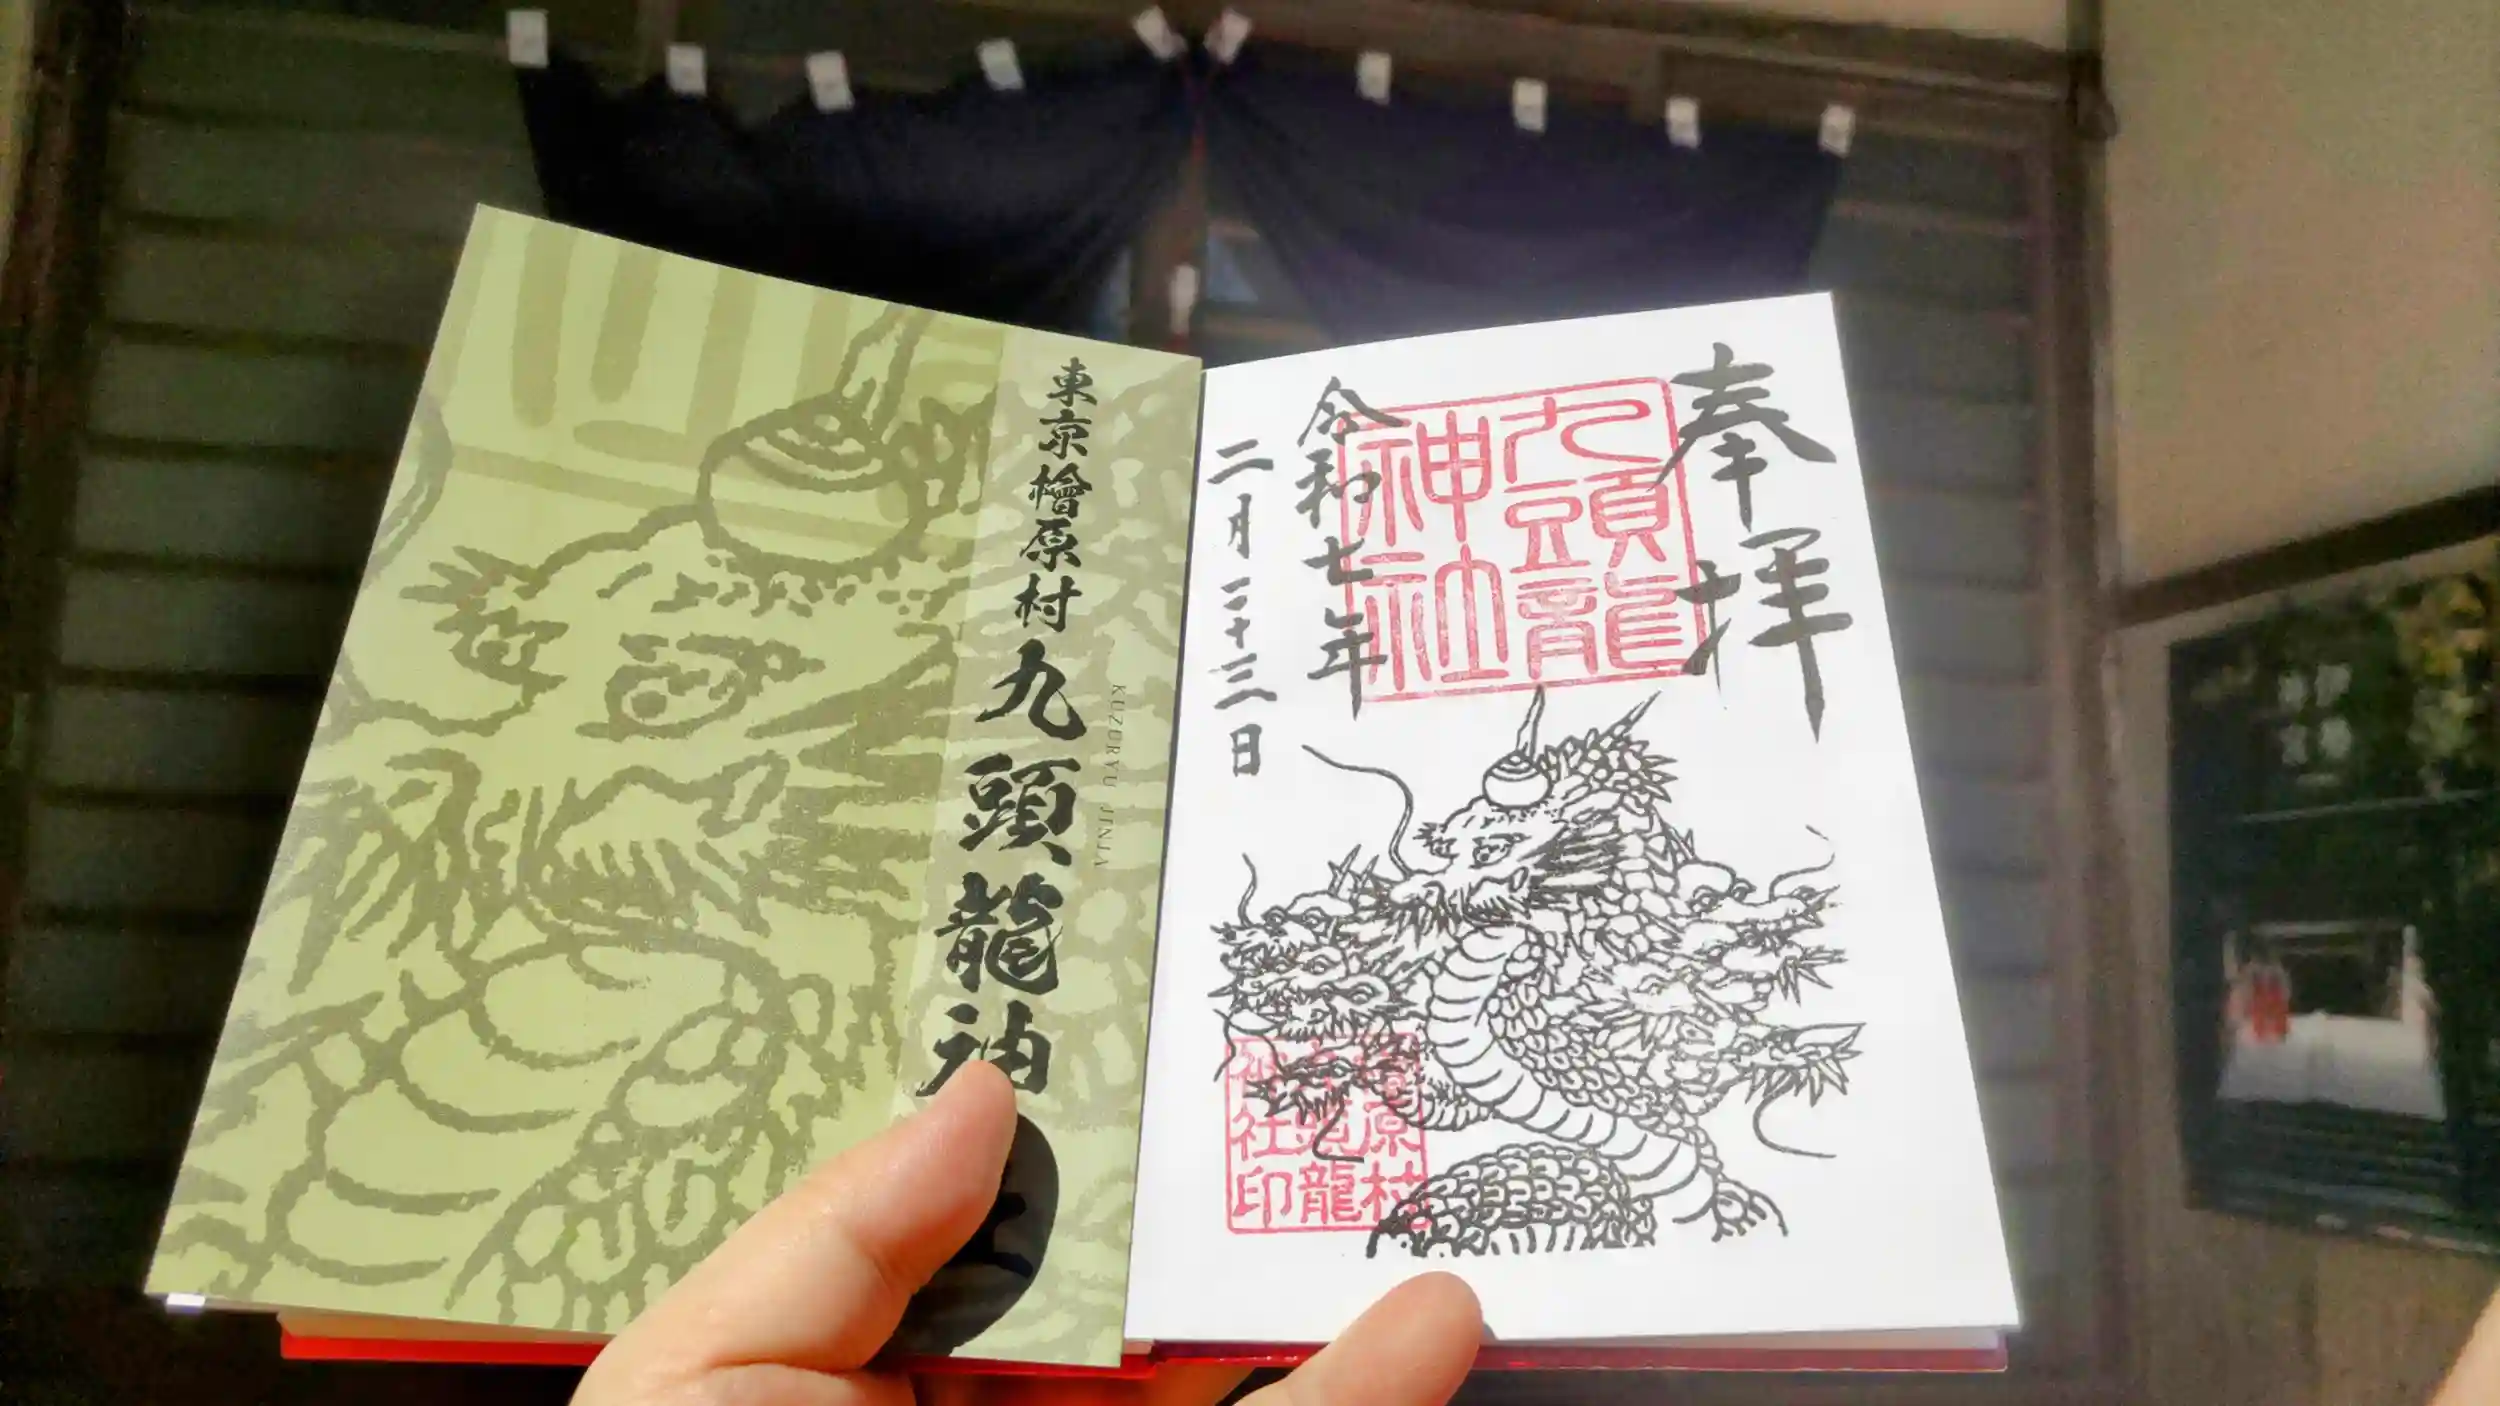 奉拝
九頭龍
神社
令和七年
二月二十三日
檜原村
九頭龍
神社印
KUZURYU JINJA
東京檜原村九頭龍神